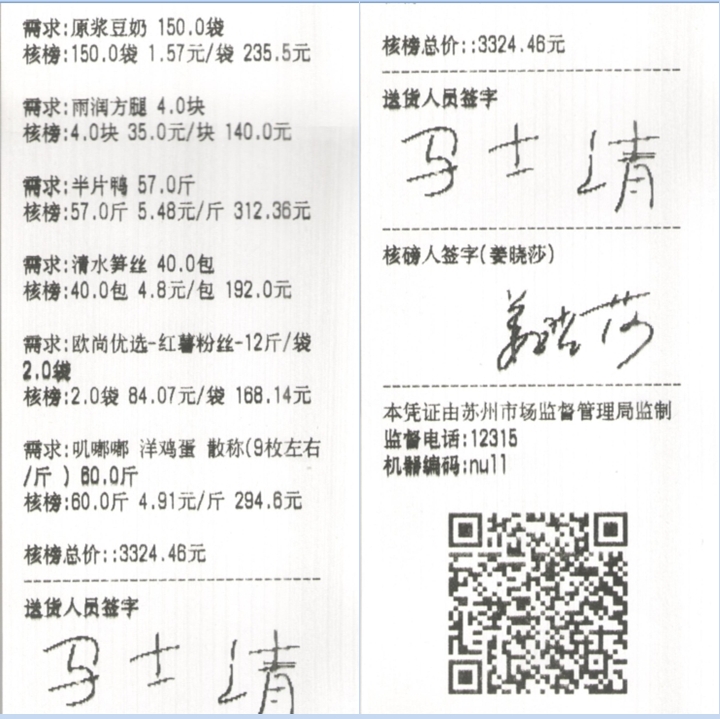 需求:原浆豆奶 150.0袋
核榜:150.0袋 1.57元/袋 235.5元
需求:雨润方腿 4.0块
核榜:4.0块 35.0元/块 140.0元
需求:半片鸭 57.0斤
核榜:57.0斤 5.48元/斤 312.36元
需求:清水笋丝 40.0包
核榜:40.0包 4.8元/包 192.0元
需求:欧尚优选-红薯粉丝-12斤/袋
2.0袋
核榜:2.0袋 84.07元/袋 168.14元
需求:叽嘟嘟 洋鸡蛋 散称(9枚左右
/斤 ) 60.0斤
核榜:60.0斤 4.91元/斤 294.6元
核榜总价::3324.46元
送货人员签字
马士清
核榜总价::3324.46元
送货人员签字
马士清
核磅人签字(姜晓莎)
姜晓莎
本凭证由苏州市场监督管理局监制
监督电话:12315
机器编码:null